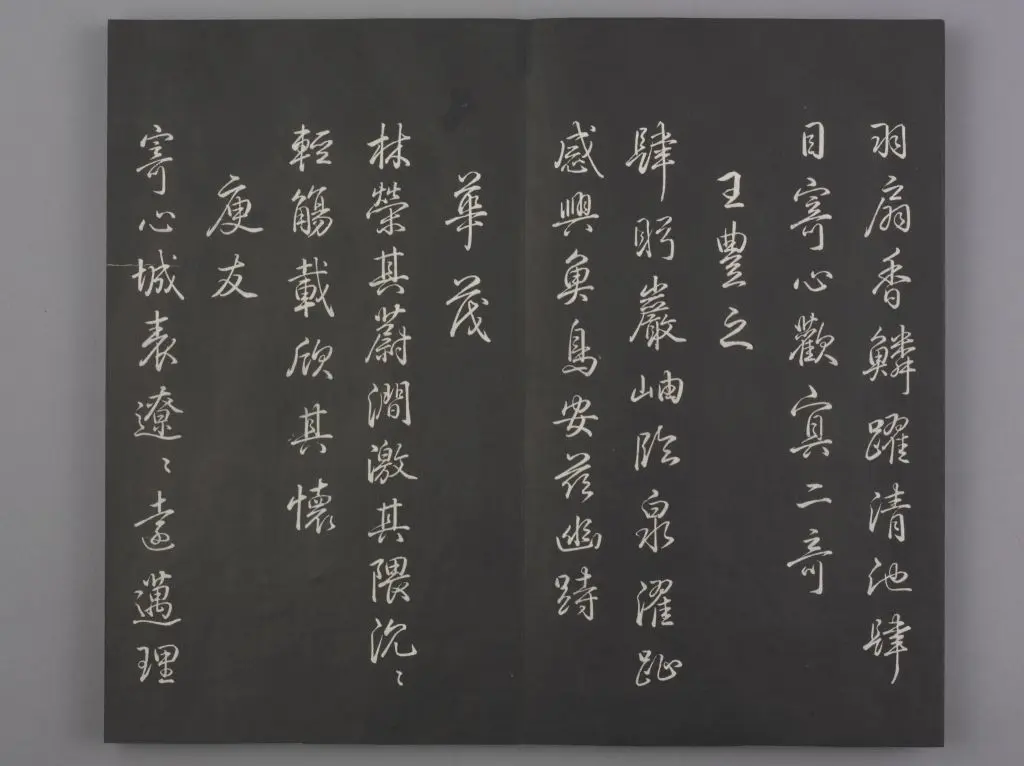 羽扇香鱗躍清池肆
目寄心歡寘二奇
王豐之
肆眄巖岫臨泉濯趾
感興魚鳥安茲幽跱
華茂
林榮其蔚澗激其隈汎〻
輕觴載欣其懷
庾友
寄心域表遼〻遠邁理